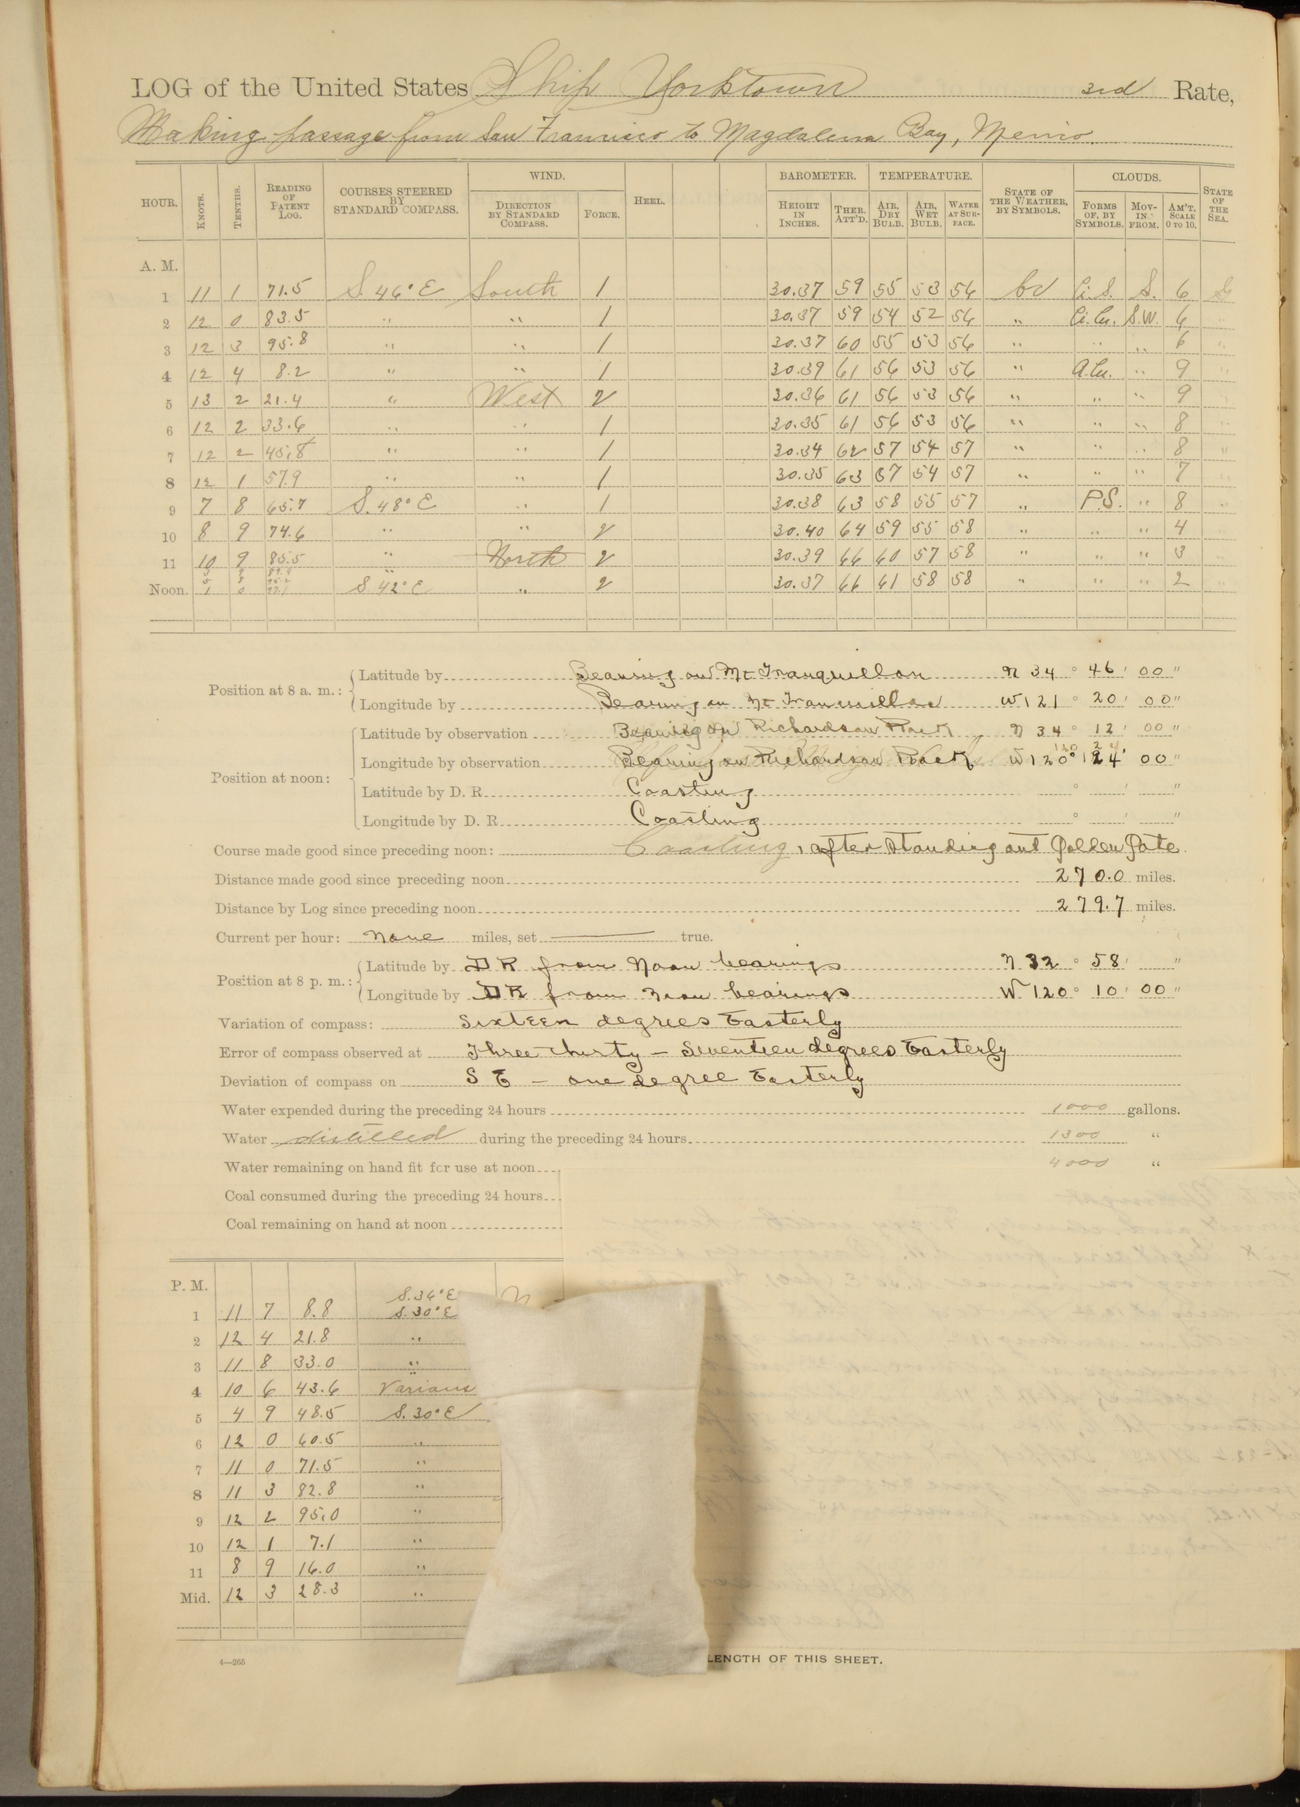 LOG of the United States Ship Yorktown 3rd Rate,
Making passage from San Francisco to Magdalena Bay, Mexico.
HOUR. KNOTS. TENTHS. READING OF PATENT LOG. COURSES STEERED BY STANDARD COMPASS. WIND. DIRECTION BY STANDARD COMPASS. FORCE. HEEL. BAROMETER. HEIGHT IN INCHES. THER. ATT'D. TEMPERATURE. AIR, DRY BULB. AIR, WET BULB. WATER AT SUR- FACE. STATE OF THE WEATHER, BY SYMBOLS. CLOUDS. FORMS OF, BY SYMBOLS. MOV- IN FROM. AM'T. SCALE 0 TO 10. STATE OF THE SEA.
A. M.
1 11 1 71.5 S. 46° E South 1 30.37 59 55 53 56 bv Ci. S. S. 6 S
2 12 0 83.5 " " 1 30.37 59 54 52 56 " Ci. Cu. S.W. 6 "
3 12 3 95.8 " " 1 30.37 60 55 53 56 " " " 6 "
4 12 4 8.2 " " 1 30.39 61 56 53 56 " A. Cu. " 9 "
5 13 2 21.4 " West 2 30.36 61 56 53 56 " " " 9 "
6 12 2 33.6 " " 1 30.35 61 56 53 56 " " " 8 "
7 12 2 45.8 " " 1 30.34 62 57 54 57 " " " 8 "
8 12 1 57.9 " " 1 30.35 63 57 54 57 " " " 7 "
9 7 8 65.7 S. 48° E " 1 30.38 63 58 55 57 " P.S. " 8 "
10 8 9 74.6 " " 2 30.40 64 59 55 58 " " " 4 "
11 10 9 85.5 " North 2 30.39 66 60 57 58 " " " 3 "
Noon. 1 0 S 42° E " 2 30.37 66 61 58 58 " " " 2 "
Position at 8 a. m.: Latitude by Bearing on Mt Tranquillon N 34 ° 46 ' 00 "
Longitude by Bearing on Mt Tranquillon W 121 ° 20 ' 00 "
Position at noon: Latitude by observation Bearing on Richardson Rock N 34 ° 12 ' 00 "
Longitude by observation Bearing on Richardson Rock W 120 ° 24 ' 00 "
Latitude by D. R. Coasting ° ' "
Longitude by D. R. Coasting ° ' "
Course made good since preceding noon: Coasting, after standing out Golden Gate
Distance made good since preceding noon 270.0 miles.
Distance by Log since preceding noon 279.7 miles.
Current per hour: None miles, set true.
Position at 8 p. m.: Latitude by DR from Noon bearings N 32 ° 58 ' "
Longitude by DR from Noon bearings W 120 ° 10 ' 00 "
Variation of compass: Sixteen degrees Easterly
Error of compass observed at Three thirty — Seventeen degrees Easterly
Deviation of compass on S E — one degree Easterly
Water expended during the preceding 24 hours 1000 gallons.
Water distilled during the preceding 24 hours 1300 "
Water remaining on hand fit for use at noon 4000 "
Coal consumed during the preceding 24 hours
Coal remaining on hand at noon
P. M.
S. 34° E
1 11 7 8.8 S. 30° E N
2 12 4 21.8 "
3 11 8 33.0 "
4 10 6 43.6 Various
5 4 9 48.5 S. 30° E
6 12 0 60.5 "
7 11 0 71.5 "
8 11 3 82.8 "
9 12 2 95.0 "
10 12 1 7.1 "
11 8 9 16.0 "
Mid. 12 3 28.3 "
4—265
LENGTH OF THIS SHEET.